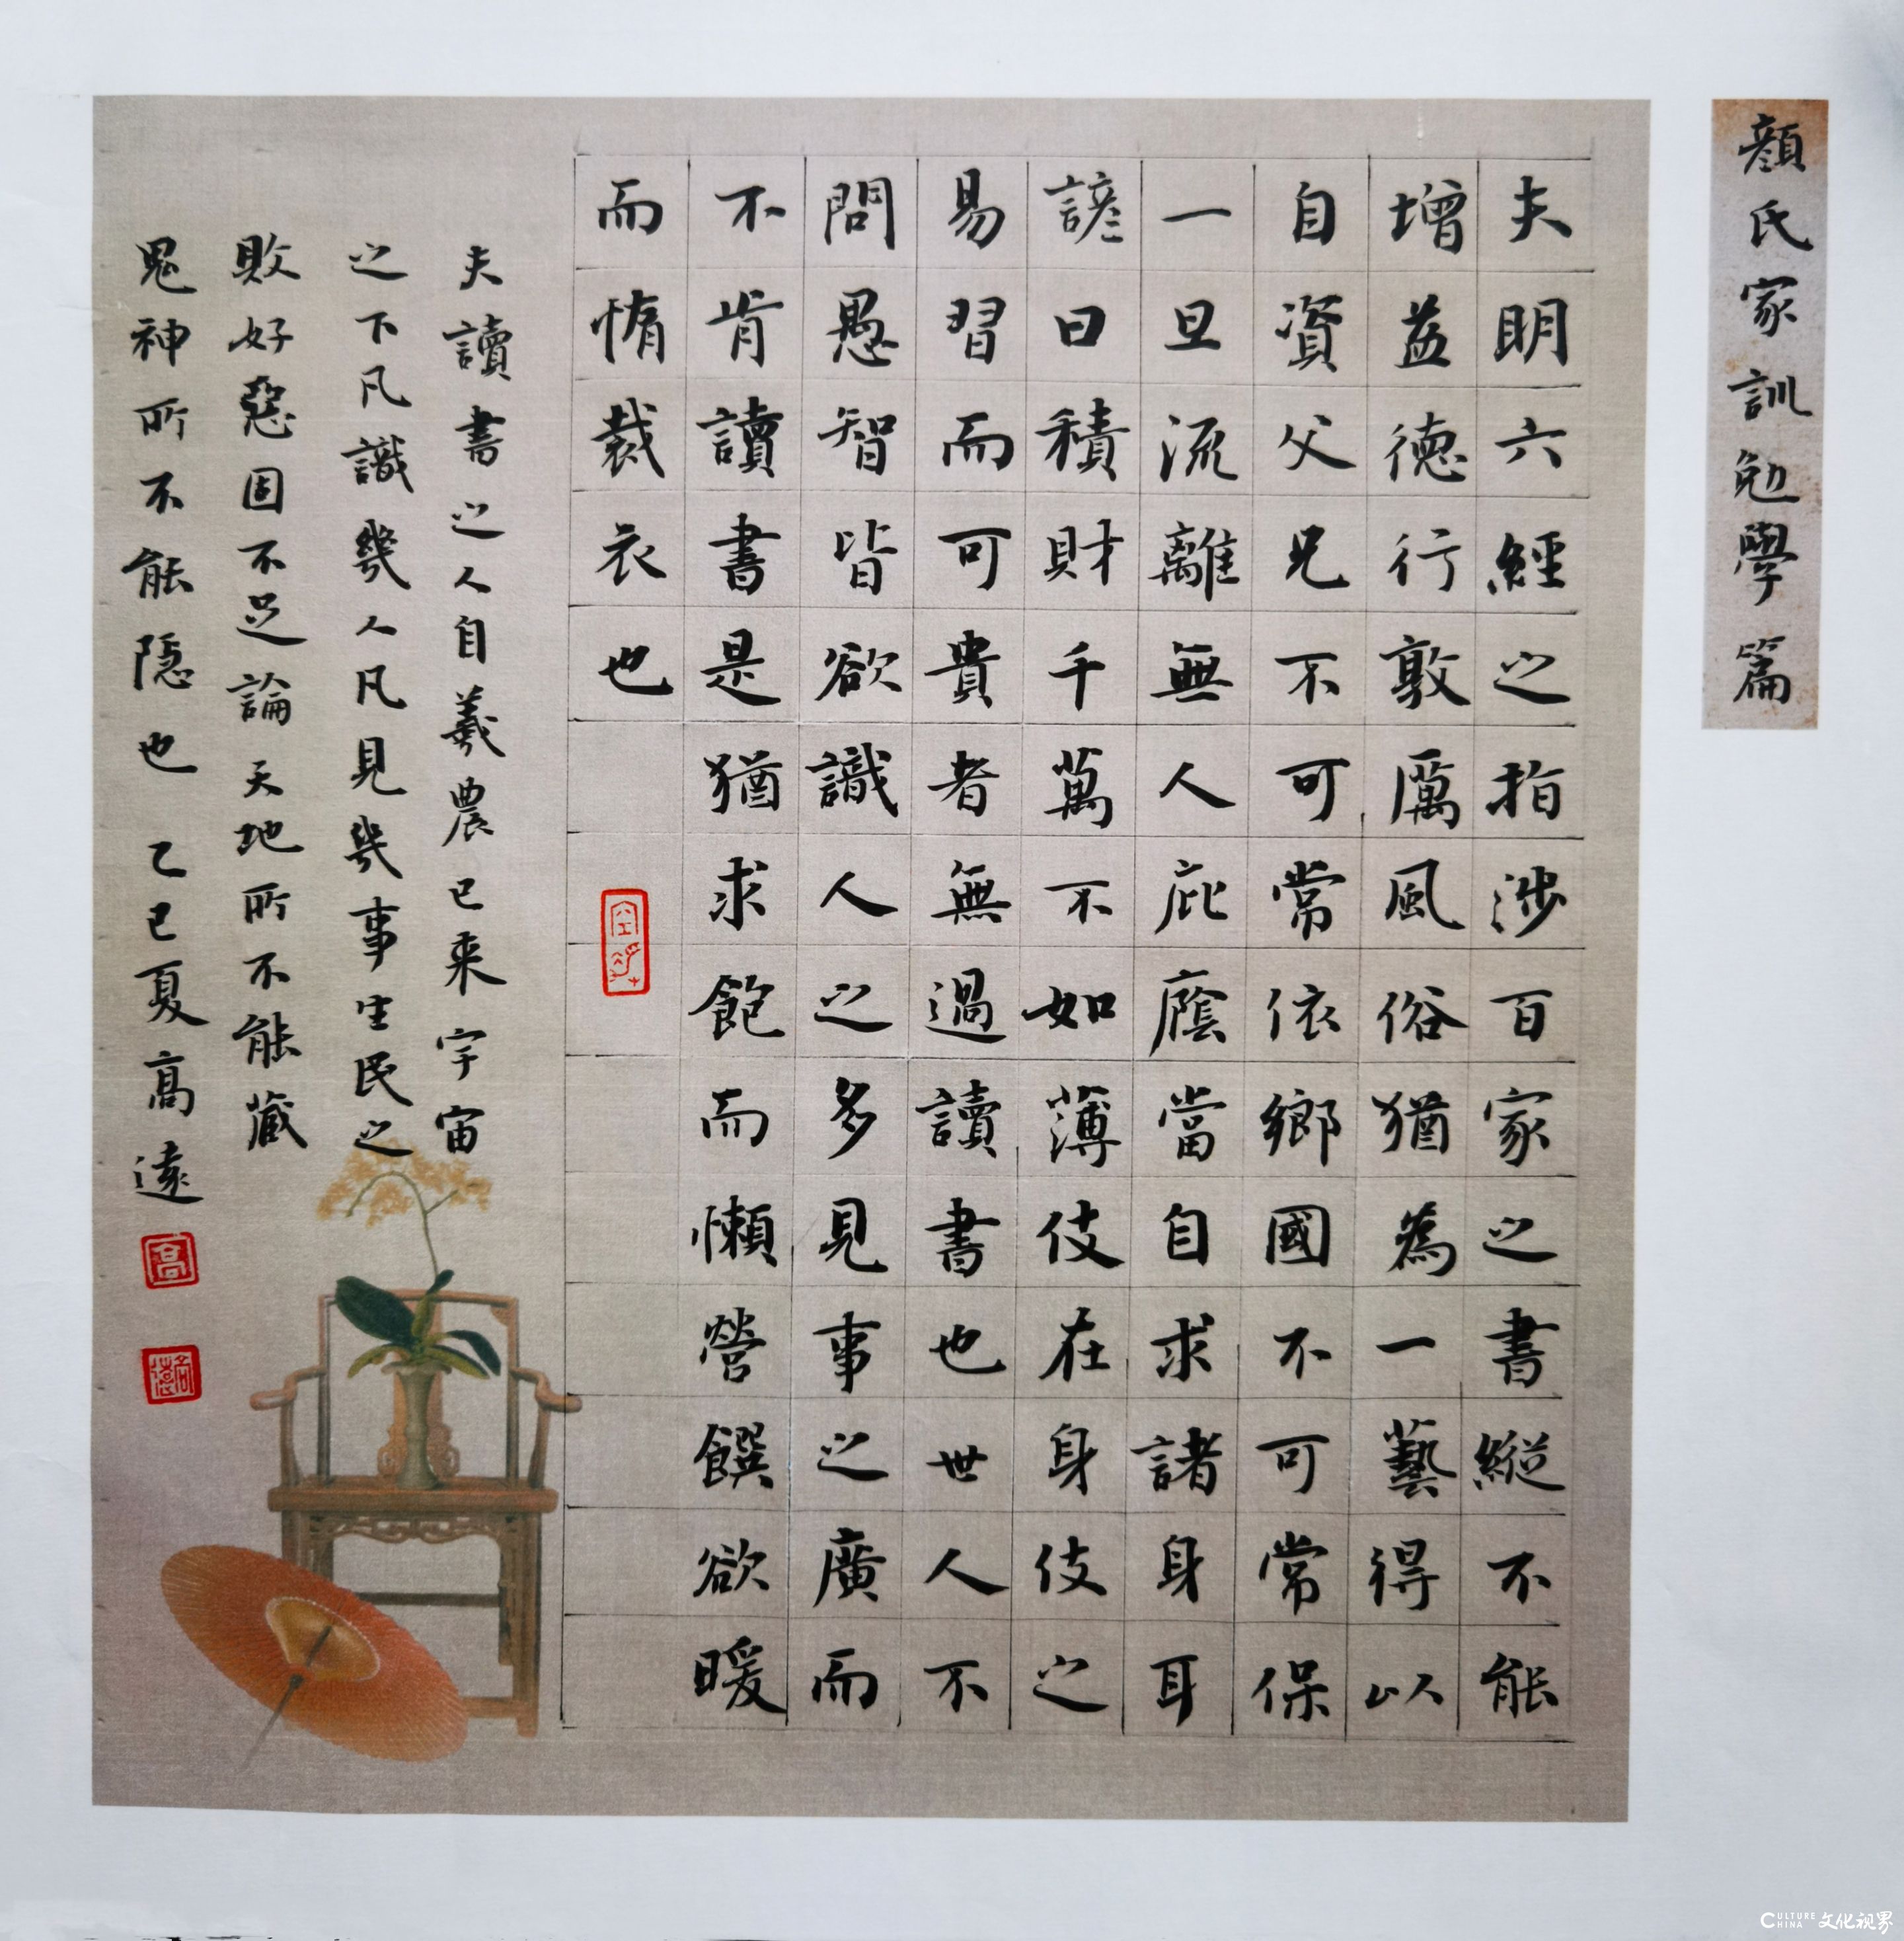 顏氏家訓勉學篇
夫明六經之指涉百家之書縱不能
增益德行敦厲風俗猶為一藝得以
自資父兄不可常依鄉國不可常保
一旦流離無人庇廕當自求諸身耳
諺曰積財千萬不如薄伎在身伎之
易習而可貴者無過讀書也世人不
問愚智皆欲識人之多見事之廣而
不肯讀書是猶求飽而懶營饌欲暖
而惰裁衣也
夫讀書之人自羲農已来宇宙
之下凡識幾人凡見幾事生民之
敗好惡固不足論天地所不能藏
鬼神所不能隱也乙巳夏高遠
高
CULTURE CHINA 文化视界